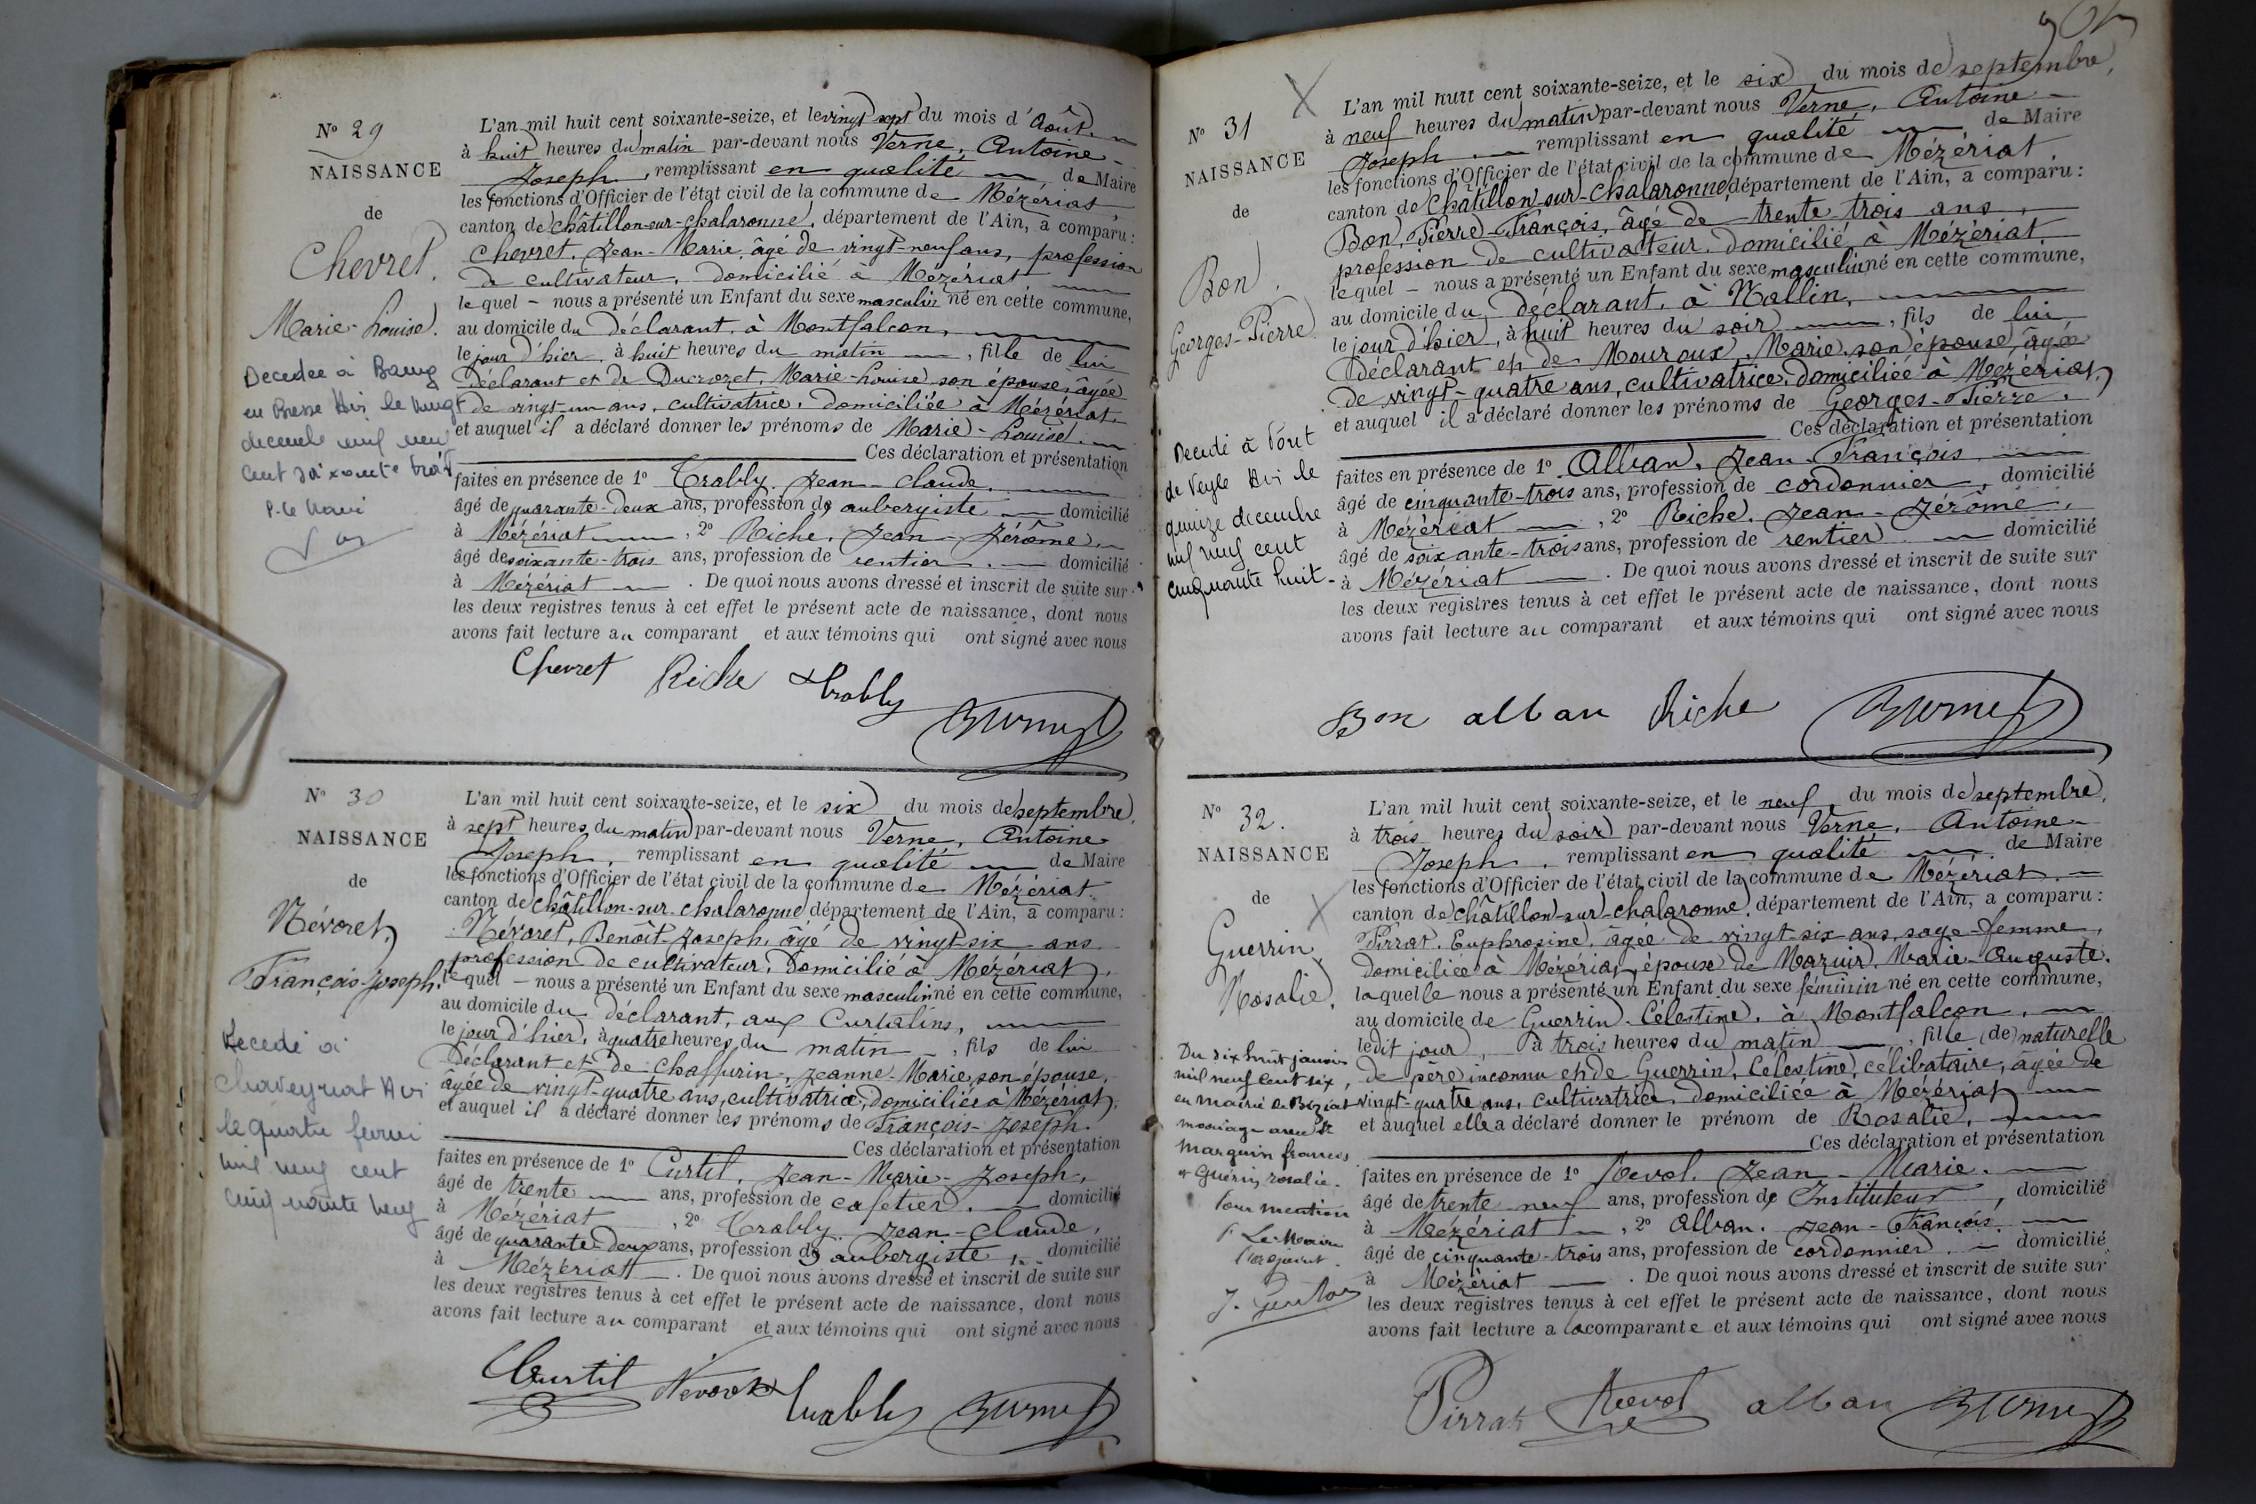 Nº 29
NAISSANCE
de
Chevret.
Marie-Louise.
Decedee à Baneg
en Bresse Ain le vingt
decembre mil neuf
cent soixante trois
P. le Maire
L'an mil huit cent soixante-seize, et le vingt sept du mois d'Août,
à huit heures du matin par-devant nous Verne, Antoine-
Joseph, remplissant en qualité de Maire
les fonctions d'Officier de l'état civil de la commune de Mézériat,
canton de Châtillon-sur-Chalaronne, département de l'Ain, a comparu :
Chevret, Jean-Marie, âgé de vingt-neuf ans, profession
de cultivateur, domicilié à Mézériat,
lequel – nous a présenté un Enfant du sexe masculin né en cette commune,
au domicile du déclarant, à Montfalcon,
le jour d'hier, à huit heures du matin, fille de lui
déclarant et de Ducrozet, Marie-Louise son épouse, âgée
de vingt-un ans, cultivatrice, domiciliée à Mézériat,
et auquel il a déclaré donner les prénoms de Marie-Louise.
Ces déclaration et présentation
faites en présence de 1º Trably, Jean-Claude,
âgé de quarante-deux ans, profession de aubergiste domicilié
à Mézériat, 2º Riche, Jean-Jérôme,
âgé de soixante-trois ans, profession de rentier, domicilié
à Mézériat. De quoi nous avons dressé et inscrit de suite sur
les deux registres tenus à cet effet le présent acte de naissance, dont nous
avons fait lecture au comparant et aux témoins qui ont signé avec nous
Chevret Riche Trably Verne
Nº 30
NAISSANCE
de
Névoret,
François-Joseph.
Decedé à
Chaveyriat Ain
le quatre fevrier
mil neuf cent
cinquante neuf
L'an mil huit cent soixante-seize, et le six du mois de septembre,
à sept heures du matin par-devant nous Verne, Antoine
Joseph, remplissant en qualité de Maire
les fonctions d'Officier de l'état civil de la commune de Mézériat
canton de Châtillon-sur-Chalaronne département de l'Ain, a comparu :
Névoret, Benoît-Joseph, âgé de vingt-six ans
profession de cultivateur, domicilié à Mézériat,
lequel – nous a présenté un Enfant du sexe masculin né en cette commune,
au domicile du déclarant, aux Curtalins,
le jour d'hier, à quatre heures du matin, fils de lui
déclarant et de Chaffurin, Jeanne-Marie, son épouse,
âgée de vingt-quatre ans, cultivatrice, domiciliée à Mézériat,
et auquel il a déclaré donner les prénoms de François-Joseph.
Ces déclaration et présentation
faites en présence de 1º Curtil, Jean-Marie-Joseph,
âgé de trente ans, profession de cafetier, domicilié
à Mézériat, 2º Trably Jean-Claude,
âgé de quarante-deux ans, profession de aubergiste, domicilié
à Mézériat. De quoi nous avons dressé et inscrit de suite sur
les deux registres tenus à cet effet le présent acte de naissance, dont nous
avons fait lecture au comparant et aux témoins qui ont signé avec nous
Curtil Névoret Trably Verne
Nº 31
NAISSANCE
de
Bon,
Georges-Pierre
Decedé à Pont
de Veyle Ain le
quinze decembre
mil neuf cent
cinquante huit-
L'an mil huit cent soixante-seize, et le six du mois de septembre,
à neuf heures du matin par-devant nous Verne, Antoine-
Joseph, remplissant en qualité de Maire
les fonctions d'Officier de l'état civil de la commune de Mézériat,
canton de Châtillon-sur-Chalaronne, département de l'Ain, a comparu :
Bon, Pierre-François, âgé de trente-trois ans,
profession de cultivateur, domicilié à Mézériat,
lequel – nous a présenté un Enfant du sexe masculin né en cette commune,
au domicile du déclarant, à Vallin,
le jour d'hier, à huit heures du soir, fils de lui
déclarant et de Mouroux, Marie, son épouse, âgée
de vingt-quatre ans, cultivatrice, domiciliée à Mézériat,
et auquel il a déclaré donner les prénoms de Georges-Pierre.
Ces déclaration et présentation
faites en présence de 1º Alban, Jean-François,
âgé de cinquante-trois ans, profession de cordonnier, domicilié
à Mézériat, 2º Riche, Jean-Jérôme,
âgé de soixante-trois ans, profession de rentier domicilié
à Mézériat. De quoi nous avons dressé et inscrit de suite sur
les deux registres tenus à cet effet le présent acte de naissance, dont nous
avons fait lecture au comparant et aux témoins qui ont signé avec nous
Bon alban Riche Verne
Nº 32.
NAISSANCE
de
Guerrin,
Rosalie.
Du dix huit janvier
mil neuf cent six,
en mairie de Béziat
mariage avec
Marguin francois
et Guérin rosalie.
Pour mention
Le Maire
L'an mil huit cent soixante-seize, et le neuf, du mois de septembre,
à trois heures du soir par-devant nous Verne, Antoine-
Joseph, remplissant en qualité de Maire
les fonctions d'Officier de l'état civil de la commune de Mézériat,
canton de Châtillon-sur-Chalaronne, département de l'Ain, a comparu :
Pirrat, Euphrosine, âgée de vingt-six ans, sage-femme,
domiciliée à Mézériat, épouse de Mazuir, Marie-Auguste.
laquelle nous a présenté un Enfant du sexe féminin né en cette commune,
au domicile de Guerrin Célestine, à Montfalcon,
le dit jour, à trois heures du matin, fille (de) naturelle
de père inconnu et de Guerrin, Célestine, célibataire, âgée de
vingt-quatre ans, cultivatrice, domiciliée à Mézériat
et auquel elle a déclaré donner le prénom de Rosalie,
Ces déclaration et présentation
faites en présence de 1º Revol, Jean-Marie,
âgé de trente neuf ans, profession de Instituteur, domicilié
à Mézériat, 2º Alban, Jean-François,
âgé de cinquante-trois ans, profession de cordonnier, domicilié
à Mézériat. De quoi nous avons dressé et inscrit de suite sur
les deux registres tenus à cet effet le présent acte de naissance, dont nous
avons fait lecture a la comparante et aux témoins qui ont signé avec nous
Pirrat Revol alban Verne